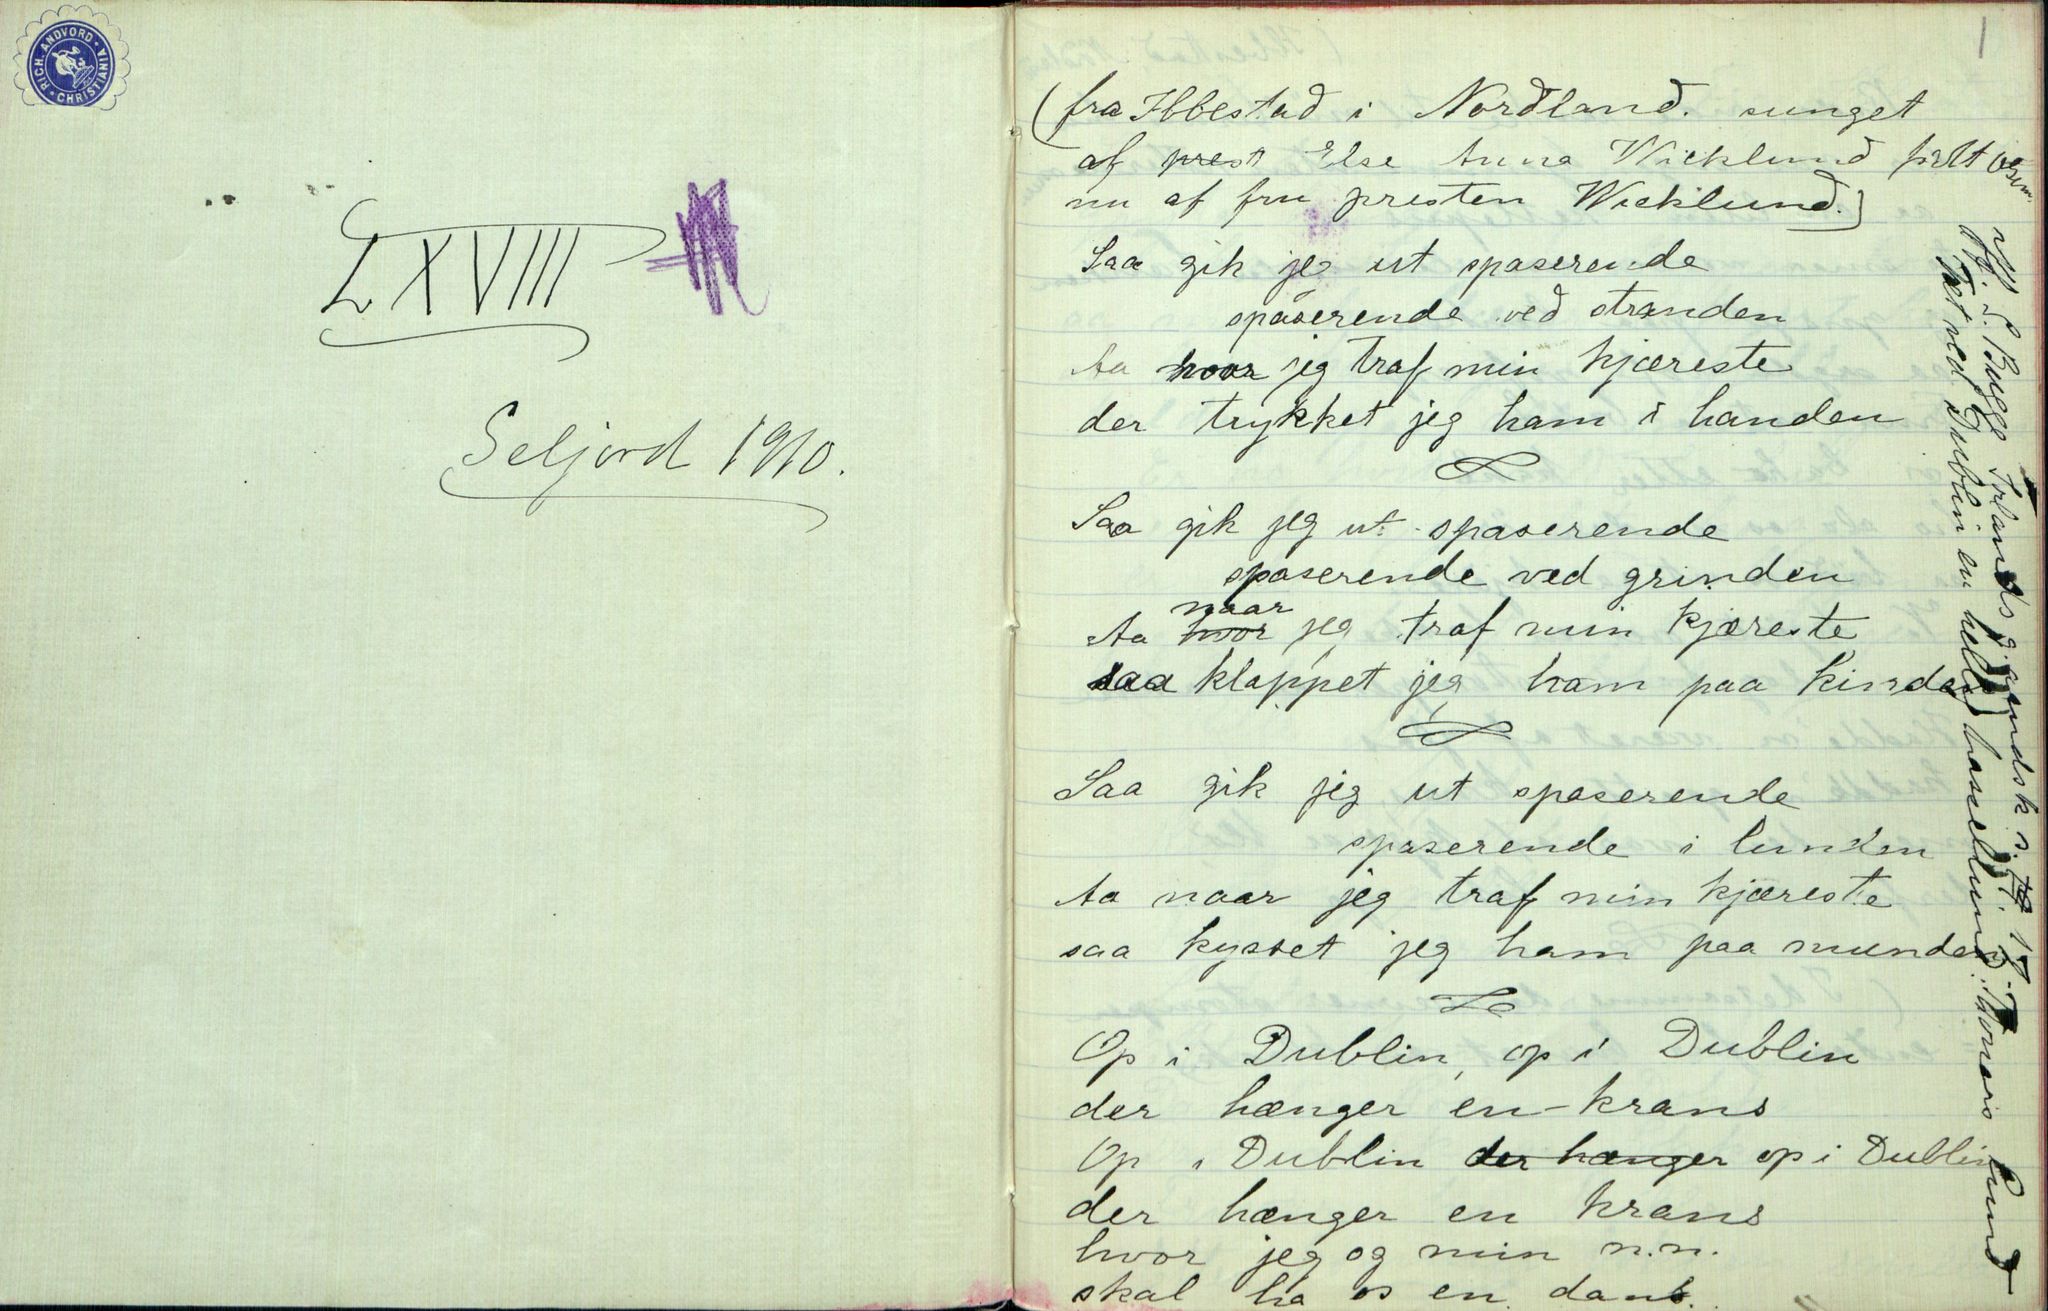 RICH. ANDVORD · CHRISTIANIA
LXVIII
Seljord 1910.
1
(fra Ibbestad i Nordland. sunget
af prest Else Anna Wicklund
nu af fru presten Wicklund.)
Saa gik jeg ut spaserende
spaserende ved stranden
Aa hvor jeg traf min kjæreste
der trykket jeg ham i handen
Saa gik jeg ut spaserende
spaserende ved grinden
naar
Aa hvor jeg traf min kjæreste
saa klappet jeg ham paa kinden
Saa gik jeg ut spaserende
spaserende i lunden
Aa naar jeg traf min kjæreste
saa kysset jeg ham paa munden
Op i Dublin, op i Dublin
der hænger en krans
Op i Dublin der hænger op i Dublin
der hænger en krans
hvor jeg og min n.n.
skal ha os en dans.
Bugge Irlands
Tæt ved Dublin en hellig hasellund. Thorsis Lund